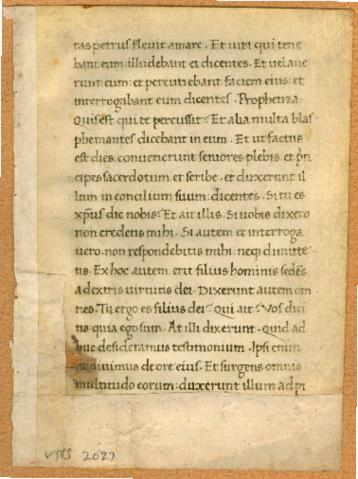 tas petrus flevit amare. Et viri qui tene
bant eum illudebant ei cedentes. Et velave
runt eum: et percutiebant faciem eius: et
interrogabant eum dicentes. Prophetiza
Quis est qui te percussit? Et alia multa blas
phemantes dicebant in eum. Et ut factus
est dies, convenerunt seniores plebis, et prin
cipes sacerdotum et scribe, et duxerunt il
lum in concilium suum: dicentes. Si tu es
xp̄us dic nobis. Et ait illis. Si vobis dixero
non credetis mihi. Si autem et interroga
vero, non respondebitis mihi: neq; dimitte
tis. Ex hoc autem erit filius hominis sedēs
a dextris virtutis dei. Dixerunt autem om
nes. Tu ergo es filius dei? Qui ait. Vos dici
tis quia ego sum. At illi dixerunt. Quid ad
huc desideramus testimonium. Ipsi enim
audivimus de ore eius. Et surgens omnis
multitudo eorum: duxerunt illum ad pi
2027